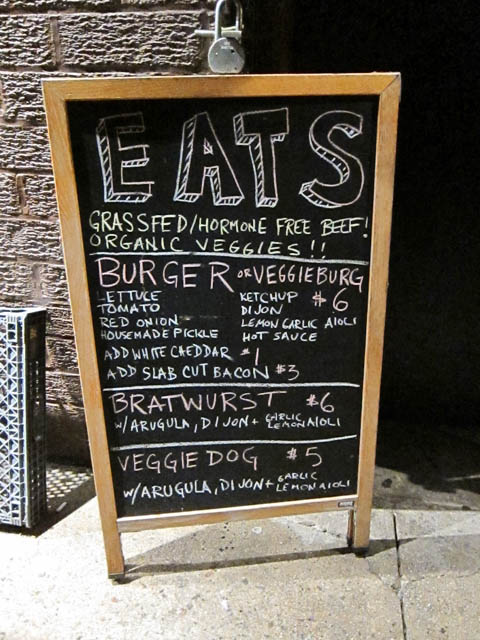 EATS
GRASSFED/HORMONE FREE BEEF!
ORGANIC VEGGIES!!
BURGER OR VEGGIEBURG
$6
LETTUCE
TOMATO
RED ONION
HOUSEMADE PICKLE
KETCHUP
DIJON
LEMON GARLIC AIOLI
HOT SAUCE
ADD WHITE CHEDDAR $1
ADD SLAB CUT BACON $3
BRATWURST $6
W/ARUGULA, DIJON + GARLIC
LEMON AIOLI
VEGGIE DOG $5
W/ARUGULA, DIJON + GARLIC
LEMON AIOLI